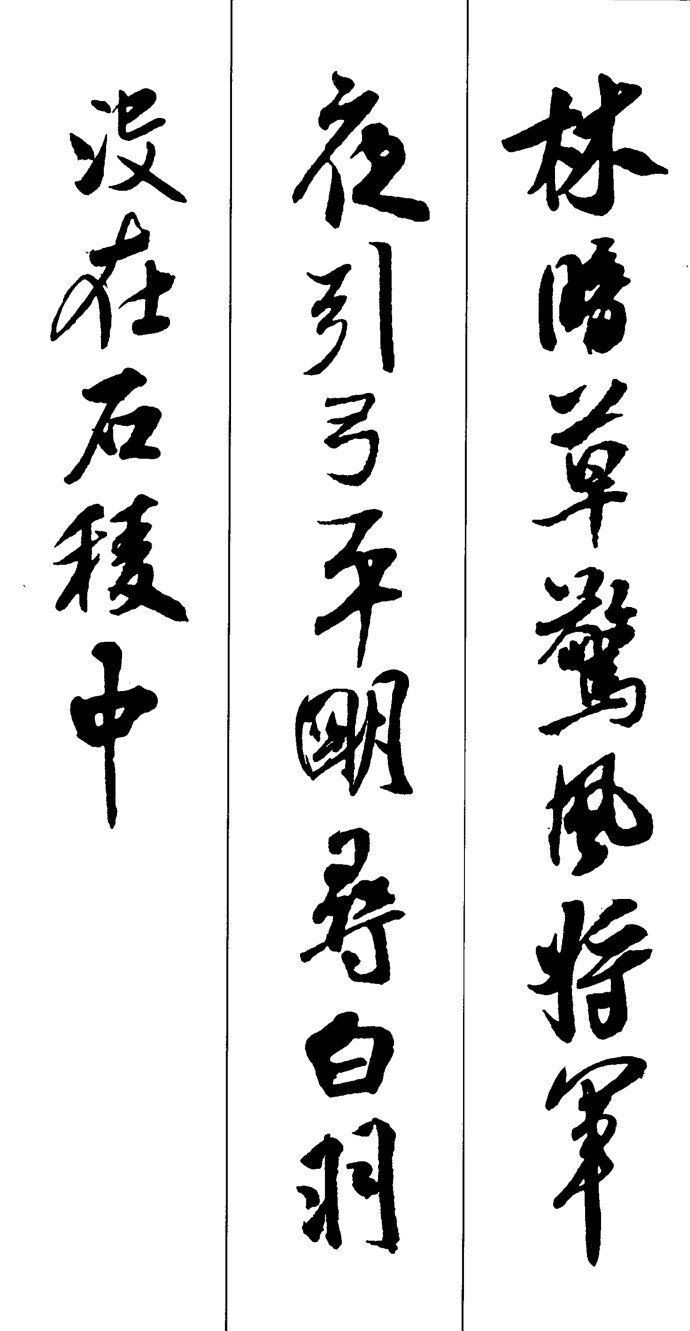 林暗草驚風將軍
夜引弓平明尋白羽
沒在石稜中